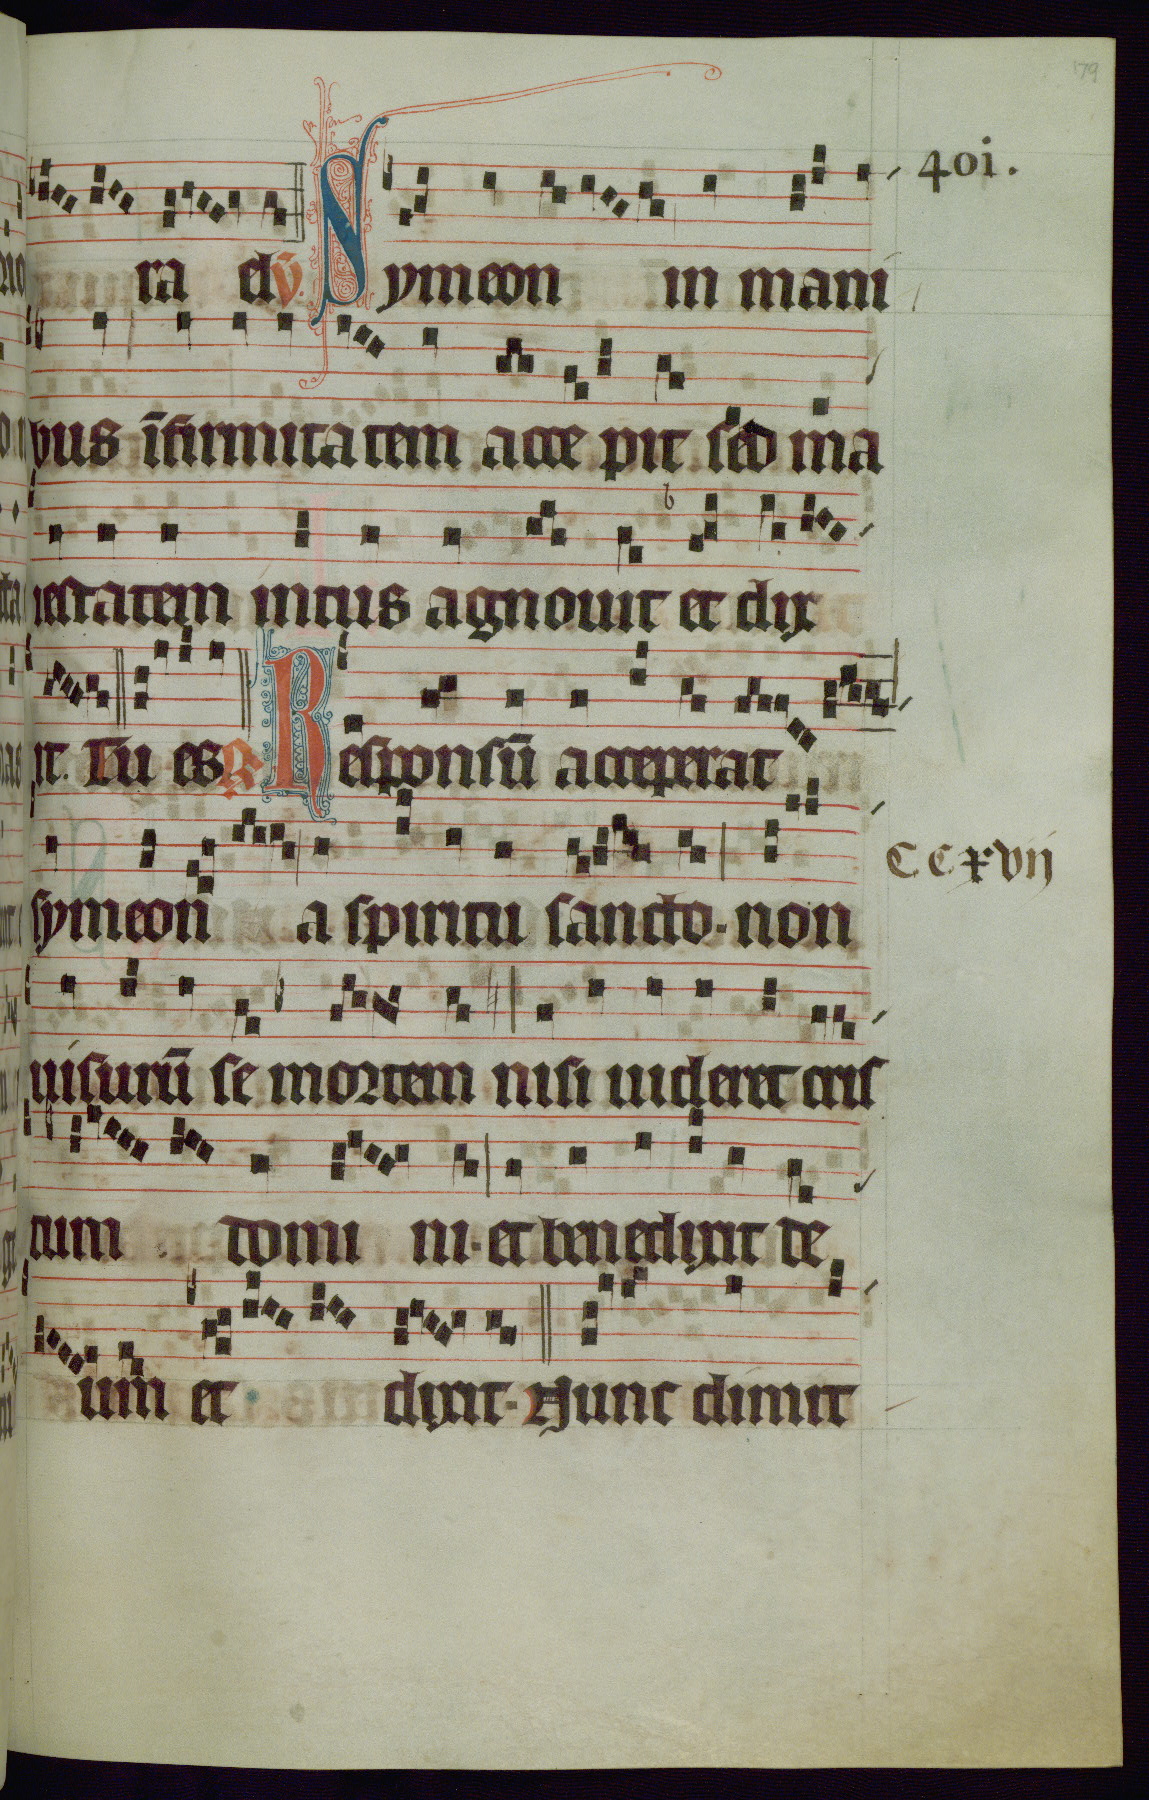 179
401.
ra d v̄. Symeon in mani
bus īfirmitatem acce pit sed ma
iestatem intus agnouit et dix
it. Tu es R Responsū acceperat
symeon a spiritu sancto· non
CCxvij
uisurū se mortem nisi uideret cris
tum domi ni· et benedixit de
um et dixit· Nunc dimit